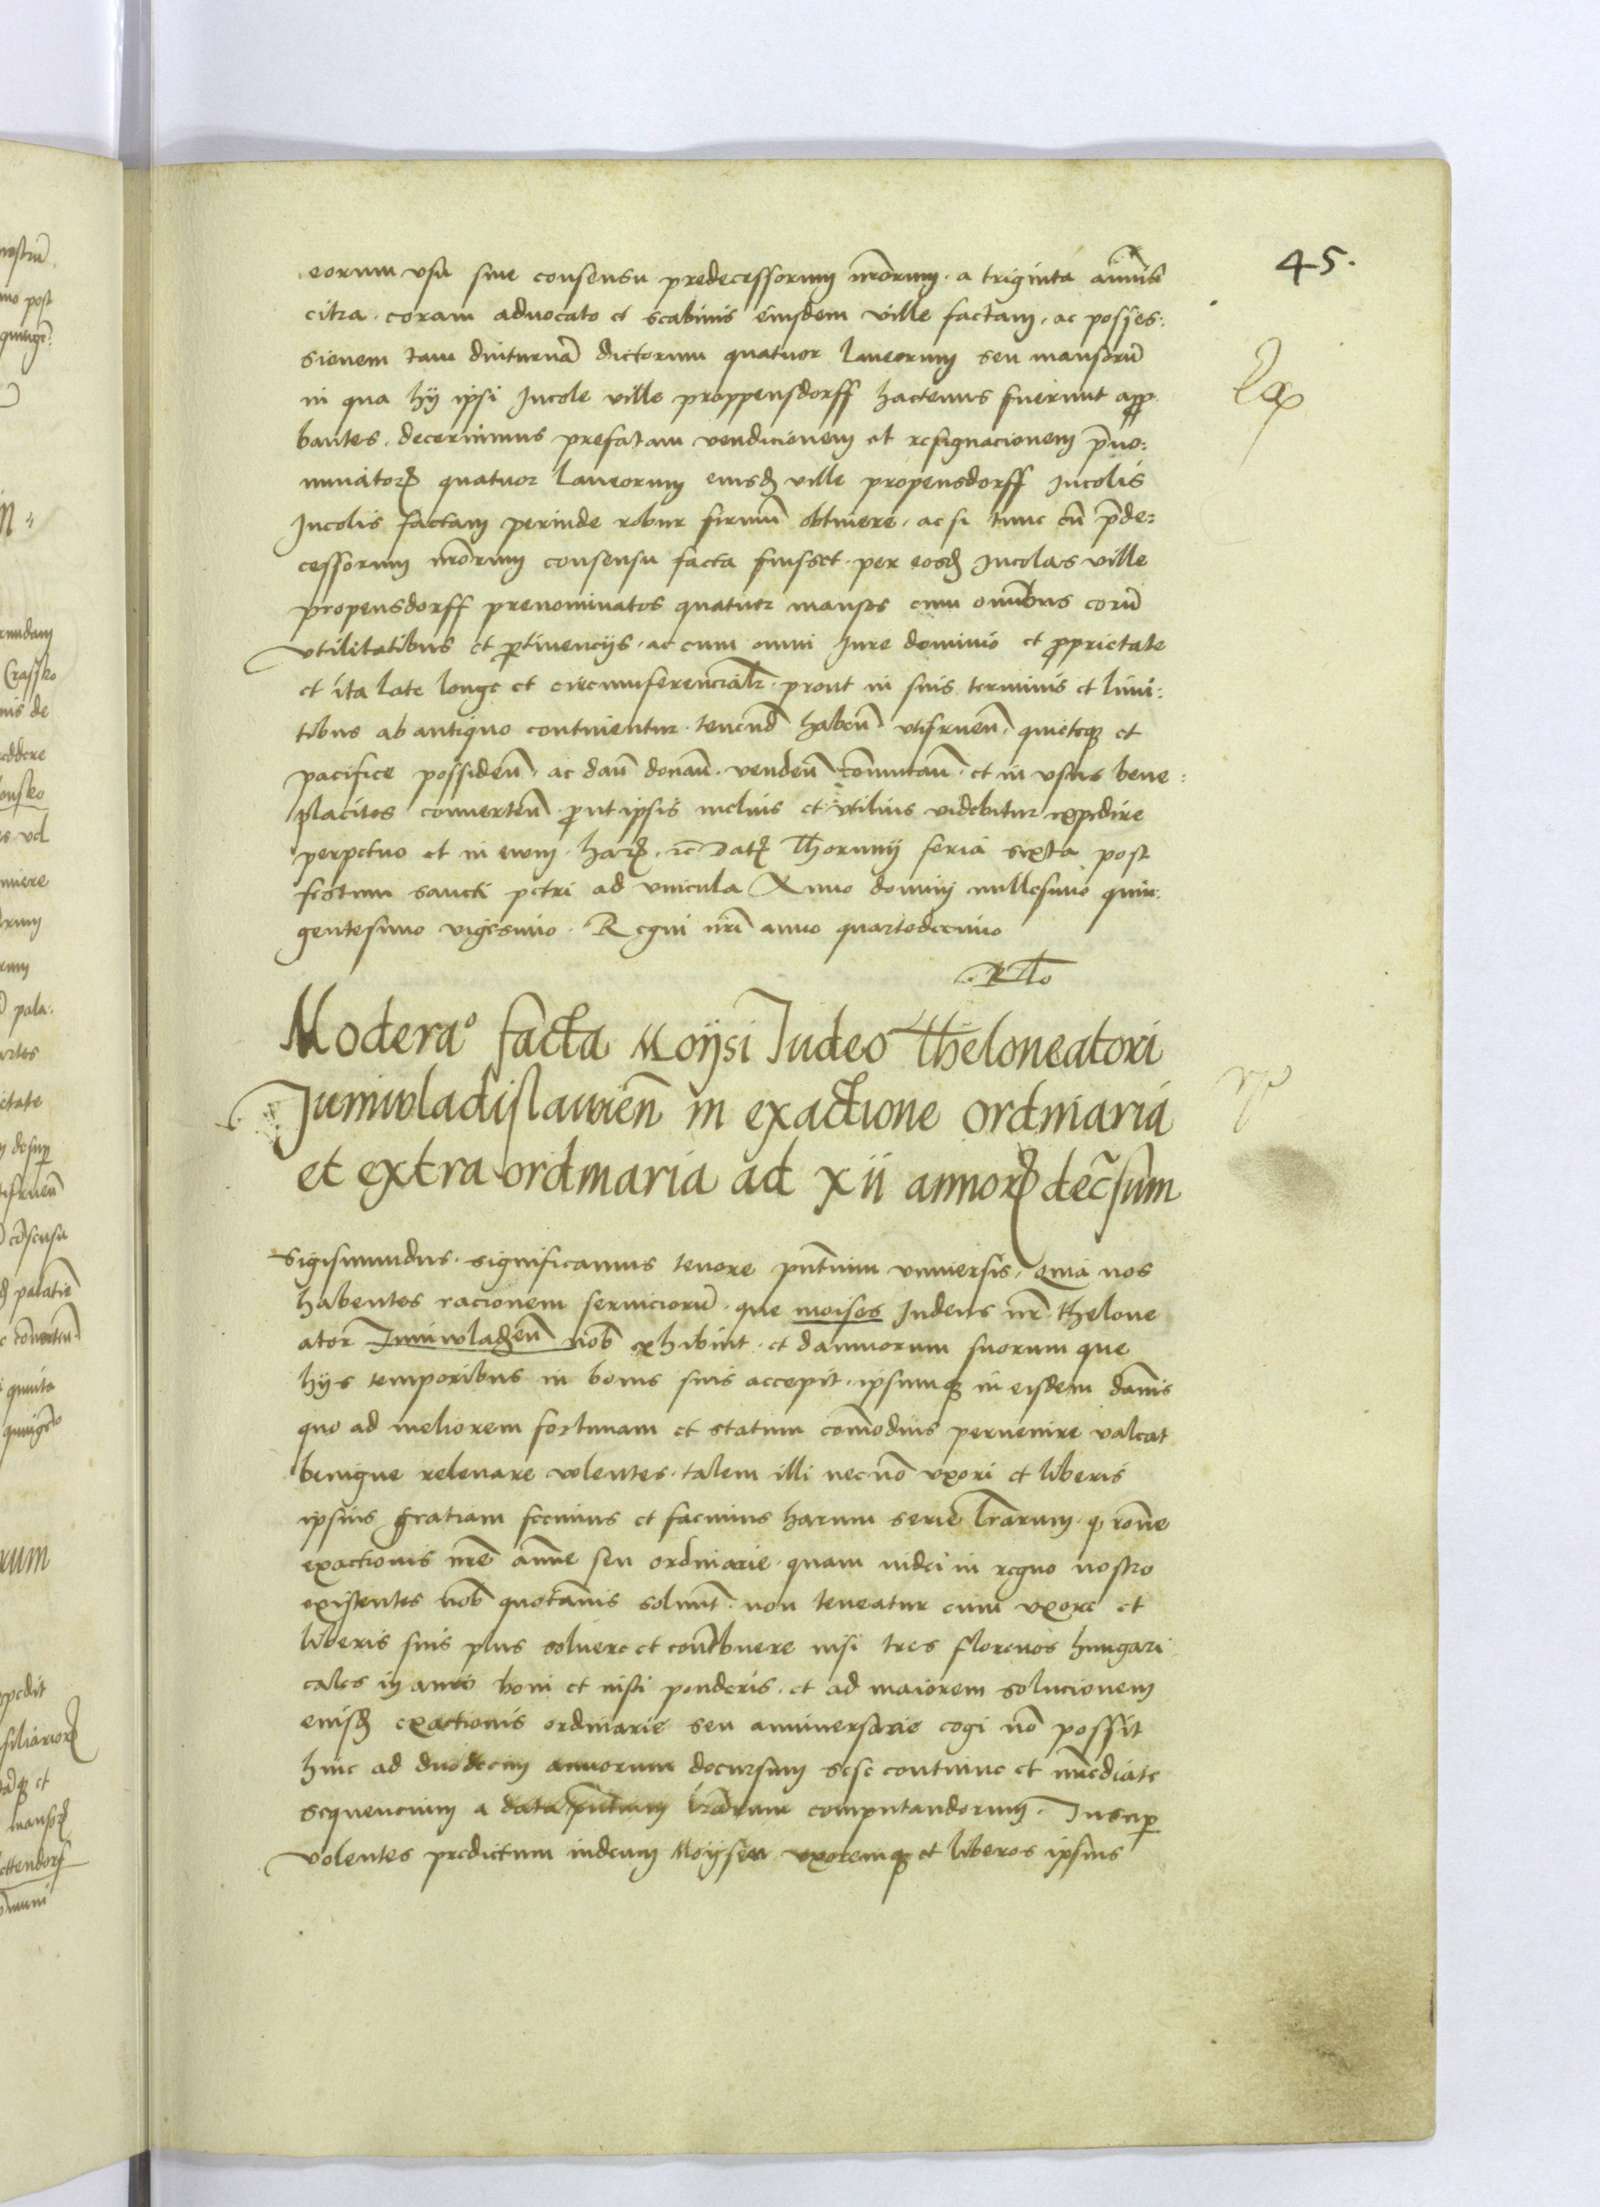 45.
eorum vsu siue consensu predecessorum nrorum a triginta annis
citra coram aduocato et scabinis eiusdem ville factam, ac posses:
sionem tam diuturnã dictorum quatuor laneorum seu mansorũ
in qua hij ipsi Incole ville proppensdorff hactenus fuerunt appro
bantes, decernimus prefatam vendicionem et resignacionem preno:
minatorꝝ quatuor laneorum eiusd ville propensdorff Incolis
Incolis factam perinde robur firmũ obtinere, ac si tunc cũ prede:
cessorum nrorum consensu facta fuisset per eosd Incolas ville
propensdorff prenominatos quatuor mansos cum omnibus eorũ
vtilitatibus et ꝑtinencijs, ac cum omni Iure dominio et ꝓprietate
et ita late longe et circumferencialr prout in suis terminis et limi:
tibus ab antiquo continentur tenend habeñ vtifrueñ, quieteqꝫ et
pacifice possideñ, ac dañ donañ vendeñ comutañ et in vsus bene:
placitos conuerteñ ꝓut ipsis melius et vtilius videbitur expedire
perpetuo et in euum harꝝ, rc Datꝝ Thorunij feria sexta post
festum sancti petri ad vincula Anno domini millesimo quin:
gentesimo vigesimo Regni nri anno quartodecimo
Rto
Moderao facta Moijsi Iudeo Theloneatori
Juniwladislauieñ in exactione ordinaria
et extraordinaria ad xii annorꝝ decrsum
Sigismundus significamus tenore pntium vniuersis, Quia nos
habentes racionem seruiciorũ que moises Iudeus nr thelone
ator Iuniwladieñ nob exhibuit et damnorum suorum que
hijs temporibus in bonis suis accepit, ipsumqꝫ in eisdem damis
quo ad meliorem fortunam et statum comodius peruenire valeat
benigne releuare volentes talem illi necno vxori et liberis
ipsius gratiam fecimus et facimus harum serie lrarum, q rone
exactionis nre anne seu ordinarie quam iudei in regno nostro
existentes nob quotannis soluunt non teneatur cum vxore et
liberis suis plus soluere et contribuere nisi tres florenos hungari
cales in auro boni et iusti ponderis, et ad maiorem solucionem
eiusd exactionis ordinarie seu anniuersarie cogi no possit
hinc ad duodecim annorum decursum sese continue et imediate
sequencium a data pntium lrarum computandorum. Insuꝑ
volentes predictum iudeum Moijsen vxoremqꝫ et liberos ipsius